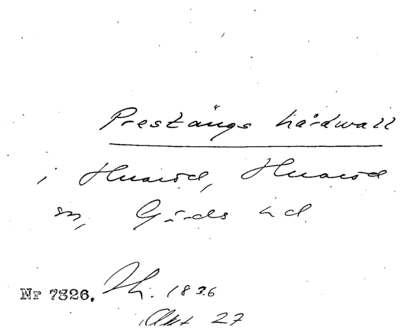 Prestängs hårdwall
i Huaröd, Huaröd
sn, Gärds hd.
Nr 7326. Th. 1836
Akt 27